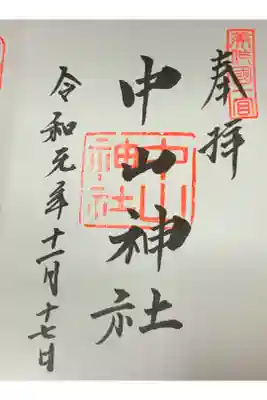 奉拝
中山神社
中山
神社
令和元年十一月十七日